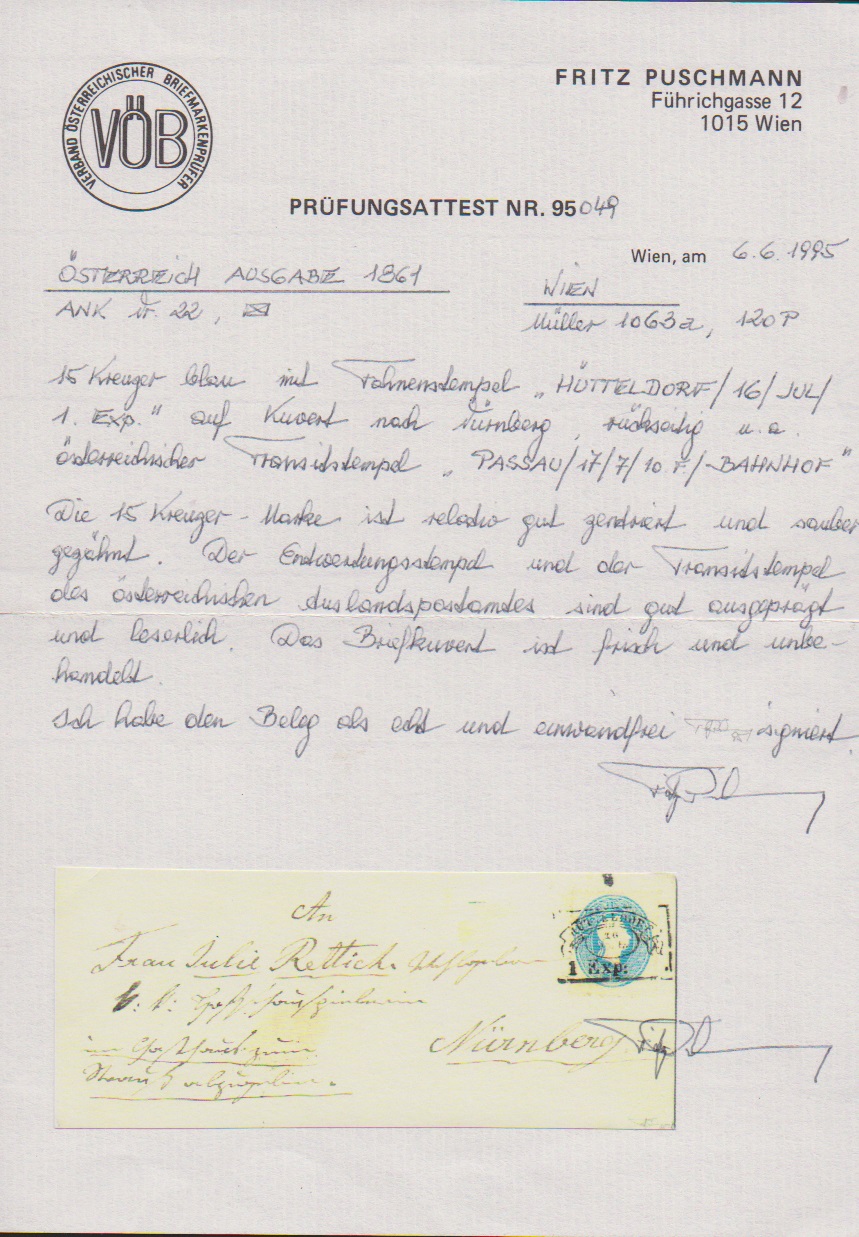 VERBAND ÖSTERREICHISCHER BRIEFMARKENPRÜFER
VÖB
FRITZ PUSCHMANN
Führichgasse 12
1015 Wien
PRÜFUNGSATTEST NR. 95049
Wien, am 6.6.1995
ÖSTERREICH AUSGABE 1861
WIEN
ANK Nr. 22,
Müller 1063a, 120P
15 Kreuzer blau mit Fahnenstempel „HÜTTELDORF/16/JUL/
1. Exp." auf Kuvert nach Nürnberg, rückseitig u.a.
österreichischer Transitstempel „PASSAU/17/7/10.F./-BAHNHOF"
Die 15 Kreuzer-Marke ist relativ gut zentriert und sauber
gezähnt. Der Entwertungsstempel und der Transitstempel
des österreichischen Auslandspostamtes sind gut ausgeprägt
und leserlich. Das Briefkuvert ist frisch und unbe-
handelt.
Ich habe den Beleg als echt und einwandfrei signiert.
An
Frau Julie Rettich
k: k: Hofschauspielerin
im Gasthaus zum
Strauß abzugeben.
Nürnberg
HÜTTELDORF
16
1 Exp: